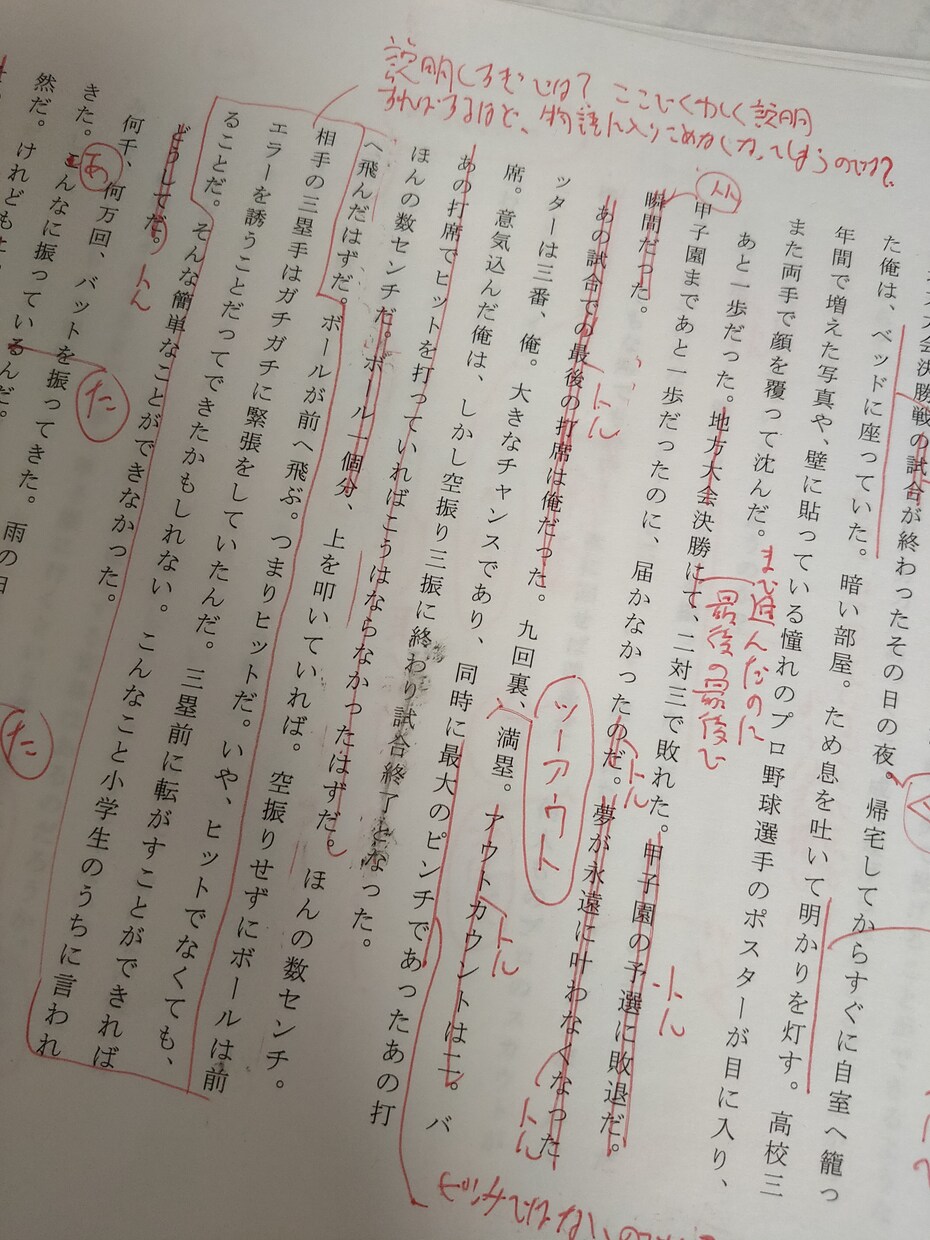 説明しすぎでは? ここでくわしく説明
すればするほど、物語に入りこめなくなってしまうのでは?
大会決勝戦の試合が終わったその日の夜。帰宅してからすぐに自室へ籠っ
た俺は、ベッドに座っていた。暗い部屋。ため息を吐いて明かりを灯す。高校三
年間で増えた写真や、壁に貼っている憧れのプロ野球選手のポスターが目に入り、
また両手で顔を覆って沈んだ。
まで進んだのに
最後の最後で
あと一歩だった。地方大会決勝にて、二対三で敗れた。甲子園の予選に敗退だ。
トル
甲子園まであと一歩だったのに、届かなかったのだ。夢が永遠に叶わなくなった
トル
トル
瞬間だった。
あの試合での最後の打席は俺だった。九回裏、満塁。アウトカウントは二。バ
トル
ツーアウト
トル
ッターは三番、俺。大きなチャンスであり、同時に最大のピンチであったあの打
ピンチではないの
席。意気込んだ俺は、しかし空振り三振に終わり試合終了となった。
あの打席でヒットを打っていればこうはならなかったはずだ。ほんの数センチ。
ほんの数センチだ。ボール一個分、上を叩いていれば。空振りせずにボールは前
へ飛んだはずだ。ボールが前へ飛ぶ。つまりヒットだ。いや、ヒットでなくても、
相手の三塁手はガチガチに緊張をしていたんだ。三塁前に転がすことができれば
エラーを誘うことだってできたかもしれない。こんなこと小学生のうちに言われ
ることだ。そんな簡単なことができなかった。
どうしてだ。
トル
何千、何万回、バットを振ってきた。雨の日
きた。こんなに振っているんだ。
あ
た
然だ。けれども
た